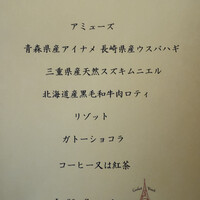 アミューズ
青森県産アイナメ 長崎県産ウスバハギ
三重県産天然スズキムニエル
北海道産黒毛和牛肉ロティ
リゾット
ガトーショコラ
コーヒー又は紅茶